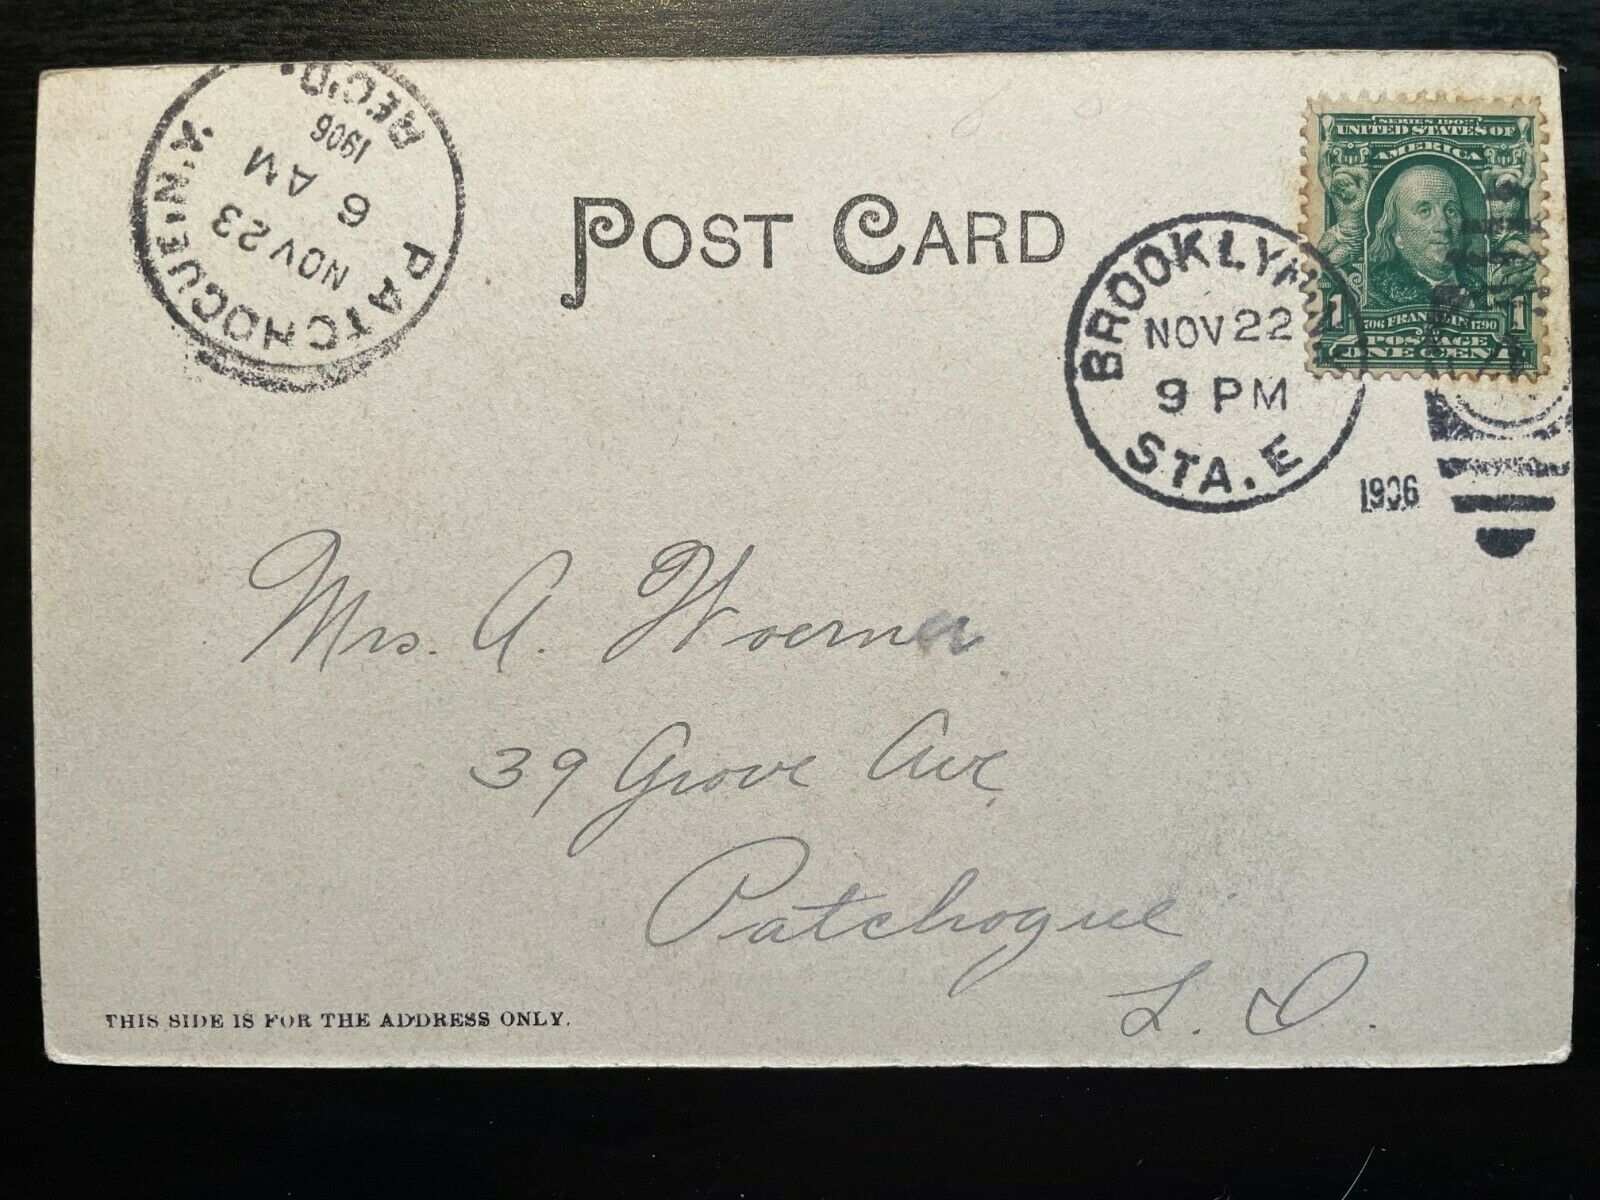 PATCHOGUE, N.Y.
NOV 23
6 AM
1906
REC'D.
POST CARD
SERIES 1902
UNITED STATES OF
AMERICA
1 1
1706 FRANKLIN 1790
POSTAGE
ONE CENT
BROOKLYN, N.Y.
NOV 22
9 PM
STA. E
1906
Mrs. A. Woerner
39 Grove Ave,
Patchogue
L. I.
THIS SIDE IS FOR THE ADDRESS ONLY.